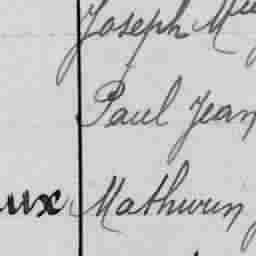 Joseph
Paul Jean
ux Mathurin